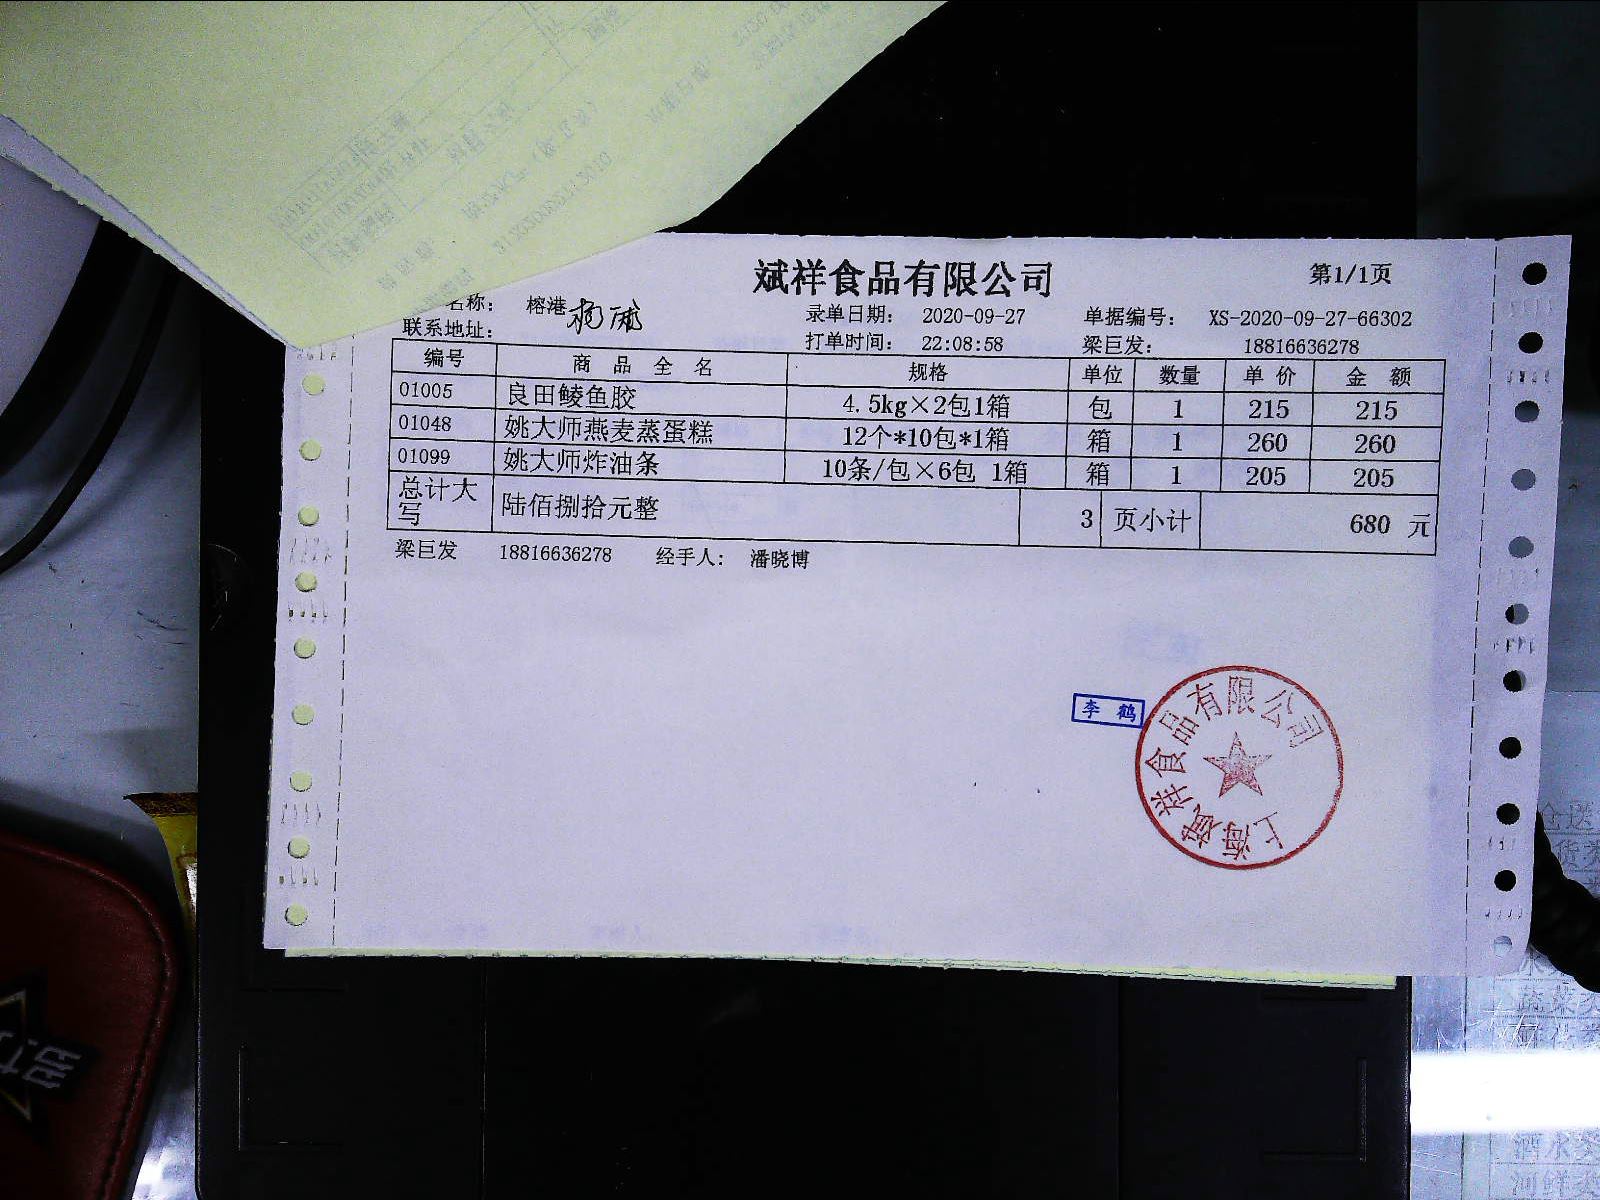 斌祥食品有限公司
第1/1页
名称： 榕港
录单日期： 2020-09-27
单据编号： XS-2020-09-27-66302
联系地址：
打单时间： 22:08:58
梁巨发： 18816636278
编号 商 品 全 名 规格 单位 数量 单 价 金 额
01005 良田鲮鱼胶 4.5kg×2包1箱 包 1 215 215
01048 姚大师燕麦蒸蛋糕 12个*10包*1箱 箱 1 260 260
01099 姚大师炸油条 10条/包×6包 1箱 箱 1 205 205
总计大写 陆佰捌拾元整 3 页小计 680 元
梁巨发 18816636278 经手人： 潘晓博
李 鹤
上海斌祥食品有限公司
蔬菜类
酒水类